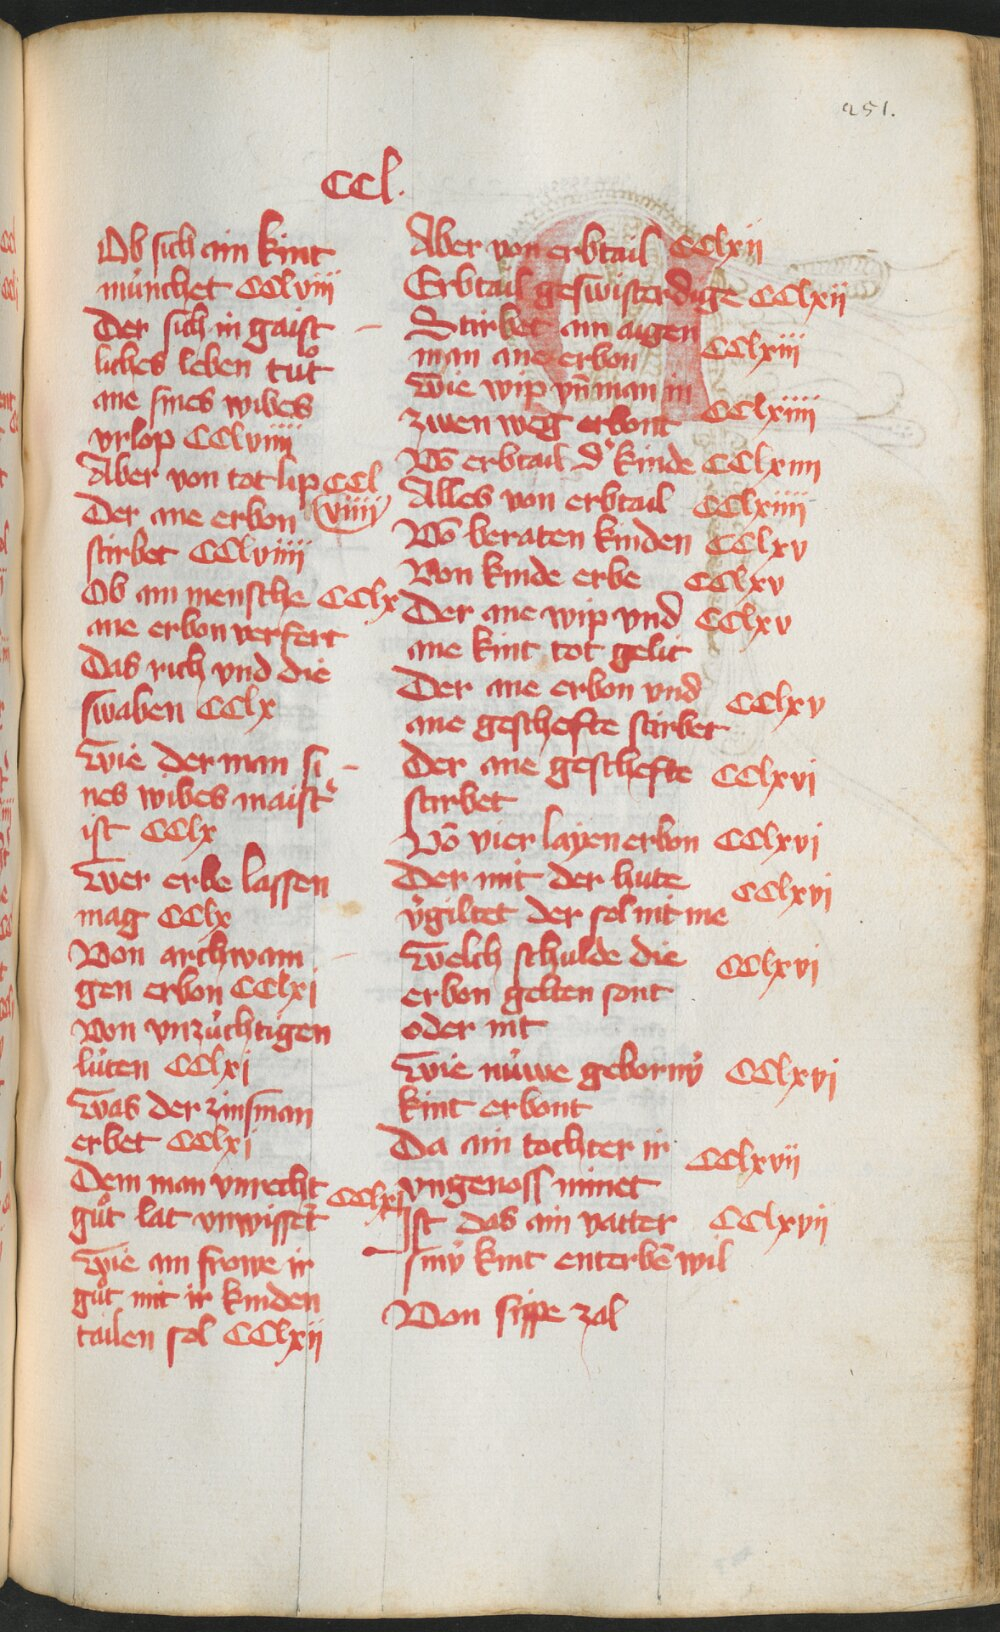 251.
CCl.
Ob sich ain kint
múnchet CClviii
Der sich in gaist
liches leben tuͦt
ane sines wibes
vrlop CClviiii
Aber von totlip CCl
viiii
Der ane erbon
stirbet CClviiii
Ob ain mensche CClx
ane erbon verfert
Das rich vnd die
swaben CClx
Wie der man si
nes wibes maistˀ
ist CClx
Wer erbe lassen
mag CClx
Von archwani
gen erbon CClxi
Von vnzúchtigen
lúten CClxi
Was der zinsman
erbet CClxi
Dem man vnrecht CClxi
guͦt lat vnwissēt
Wie ain frowe ir
guͦt mit ir kinden
tailen sol CClxii
Aber von erbtail CClxii
Erbtail geswisterdige CClxii
Stirbet ain aigen
man ane erbon CClxiii
Wie wip vn̄ man in
zwen weg erbont CClxiiii
Vō erbtail dˀ kinde CClxiiii
Alles von erbtail CClxiiii
Vō beraten kinden CClxv
Von kinde erbe CClxv
Der ane wip vnd CClxv
ane kint tot gelit
Der ane erbon vnd CClxv
ane geschefte stirbet
Der ane geschefte CClxvi
stirbet
Vō vier layen erbon CClxvi
Der mit der hute CClxvi
v̓giltet der sol nit me
Welch schulde die CClxvi
erbon gelten sont
oder nit
Wie núwe gebornv́ CClxvi
kint erbont
Da ain tochter ir CClxvii
vngenoss minet
Ist das ain vatter CClxvii
sinv́ kint enterbē wil
Von sippe zal